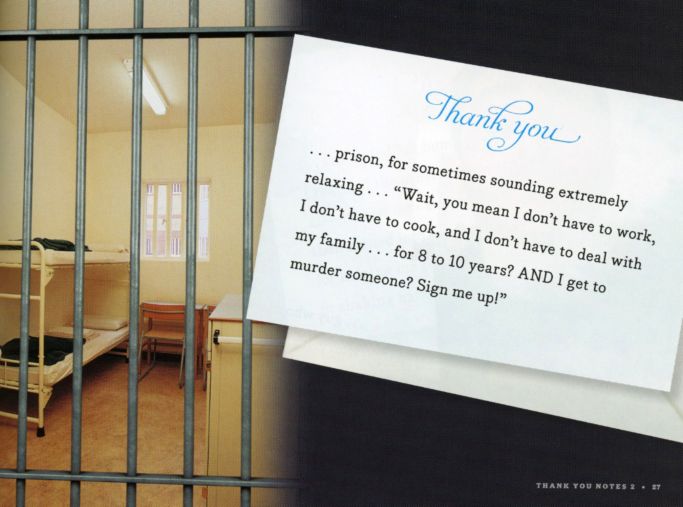 Thank you
. . . prison, for sometimes sounding extremely
relaxing . . . “Wait, you mean I don’t have to work,
I don’t have to cook, and I don’t have to deal with
my family . . . for 8 to 10 years? AND I get to
murder someone? Sign me up!”
THANK YOU NOTES 2 • 27